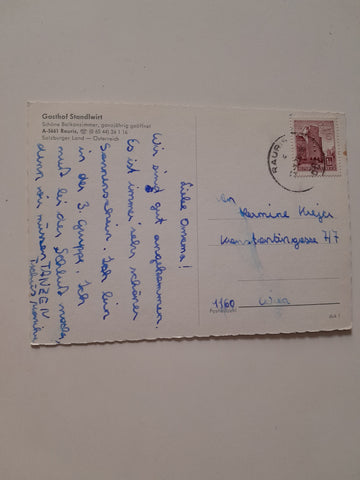 Gasthof Standlwirt
Schöne Balkonzimmer, ganzjährig geöffnet
A-5661 Rauris, ☎ (0 65 44) 26 1 16
Salzburger Land — Österreich
Liebe Omama!
Wir sind gut angekommen.
Es ist immer sehr schöner
Sonnenschein. Ich bin
in der 3. Gruppe. Ich
muß bei der Schluß
denn wir müssen TANZEN
RAURIS
An
Hermine
Konstantingasse 7/7
1160 Wien
Postleitzahl